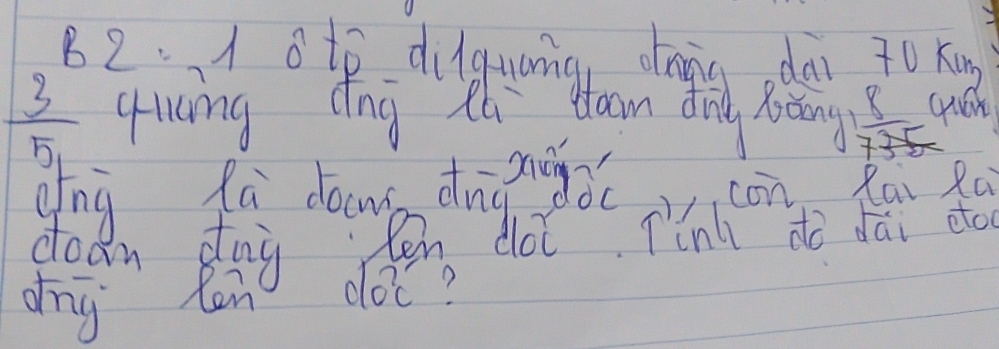 B2: 1 ô tô đi 1 quãng đường dài 70 Km
3/5 quãng đng là đoạn đng bằng, 8/35 quãng
đng là đoạn đng xuống dốc, còn lại là
đoạn đng lên dốc. Tính độ dài đoạ
đng lên dốc?